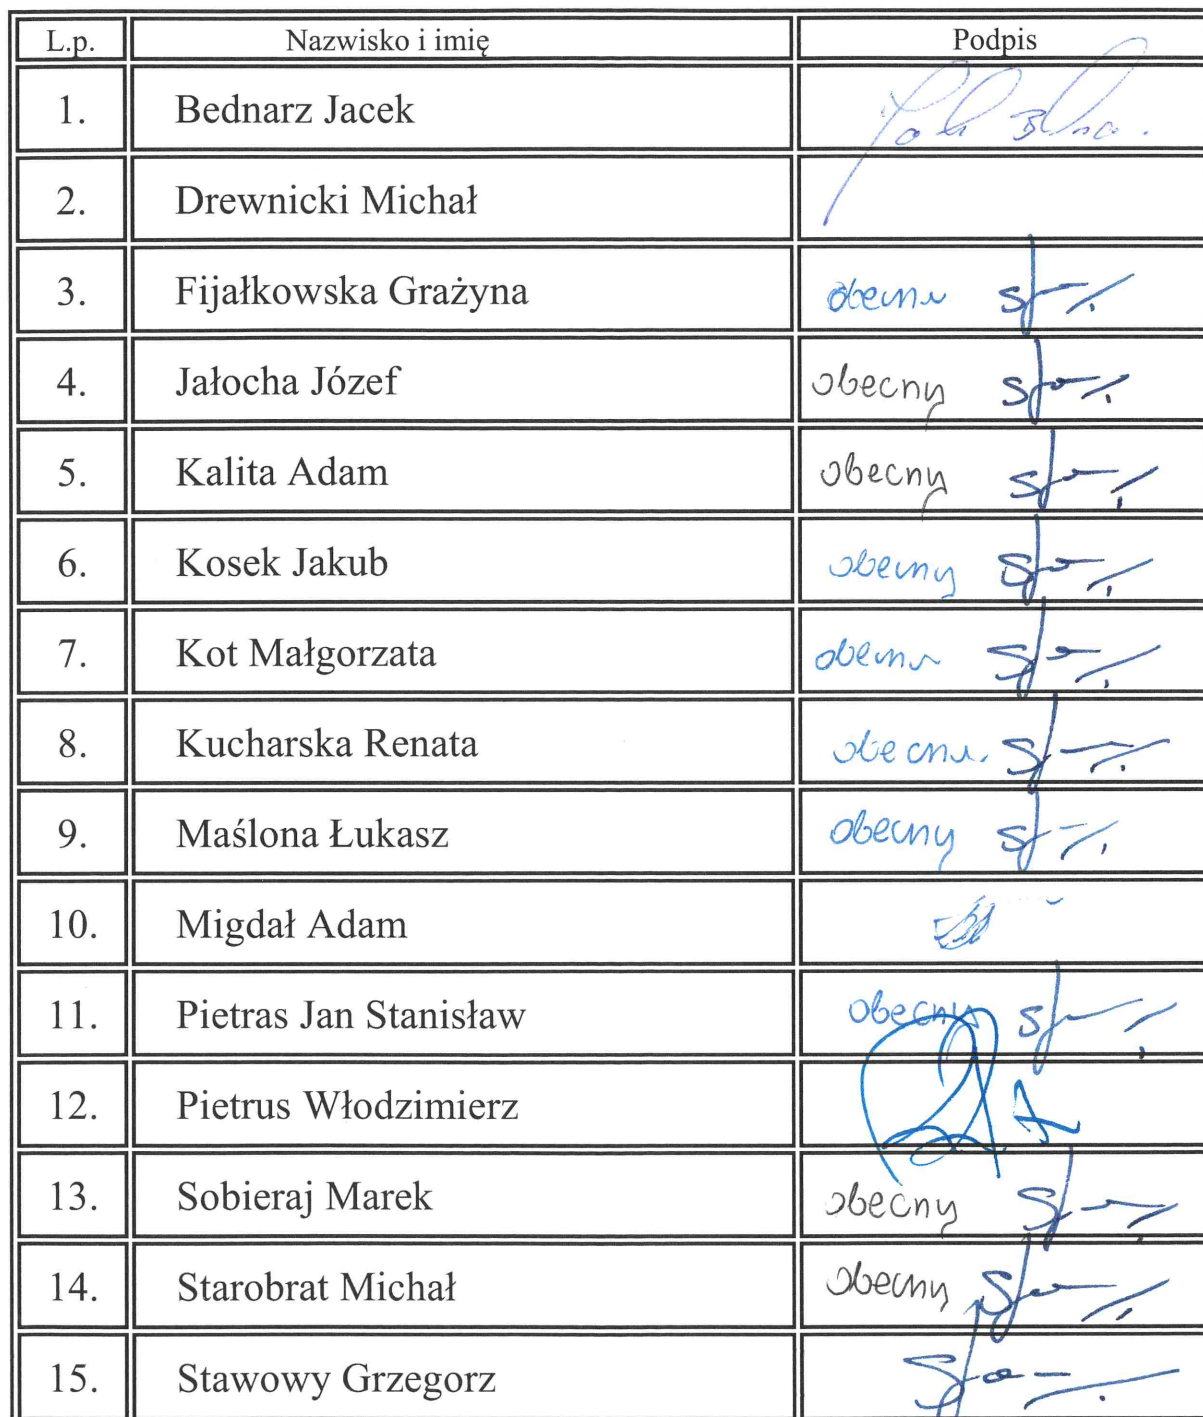 L.p. Nazwisko i imię Podpis
1. Bednarz Jacek
2. Drewnicki Michał
3. Fijałkowska Grażyna obecna
4. Jałocha Józef obecny
5. Kalita Adam obecny
6. Kosek Jakub obecny
7. Kot Małgorzata obecna
8. Kucharska Renata obecna
9. Maślona Łukasz obecny
10. Migdał Adam
11. Pietras Jan Stanisław obecny
12. Pietrus Włodzimierz
13. Sobieraj Marek obecny
14. Starobrat Michał obecny
15. Stawowy Grzegorz